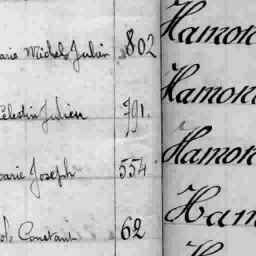 Michel Julien 802 Hamon
Célestin Julien 791. Hamon
Marie Joseph 554. Hamon
Constant 62 Ham